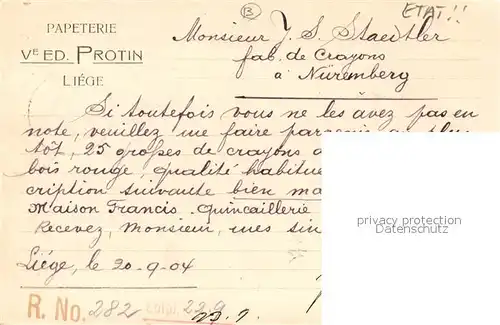 B
ETAT!!
PAPETERIE
VE ED. PROTIN
LIÉGE
Monsieur J. S. Staedtler
fab. de Crayons
à Nüremberg
Si toutefois vous ne les avez pas en
note, veuillez me faire parvenir au plus
tôt, 25 grosses de crayons
bois rouge, qualité habitue
cription suivante bien ma
Maison Francis. Quincaillerie
Recevez, Monsieur, mes sin
Liége, le 20-9-04
R. No. 282
22.9
privacy protection
watermark